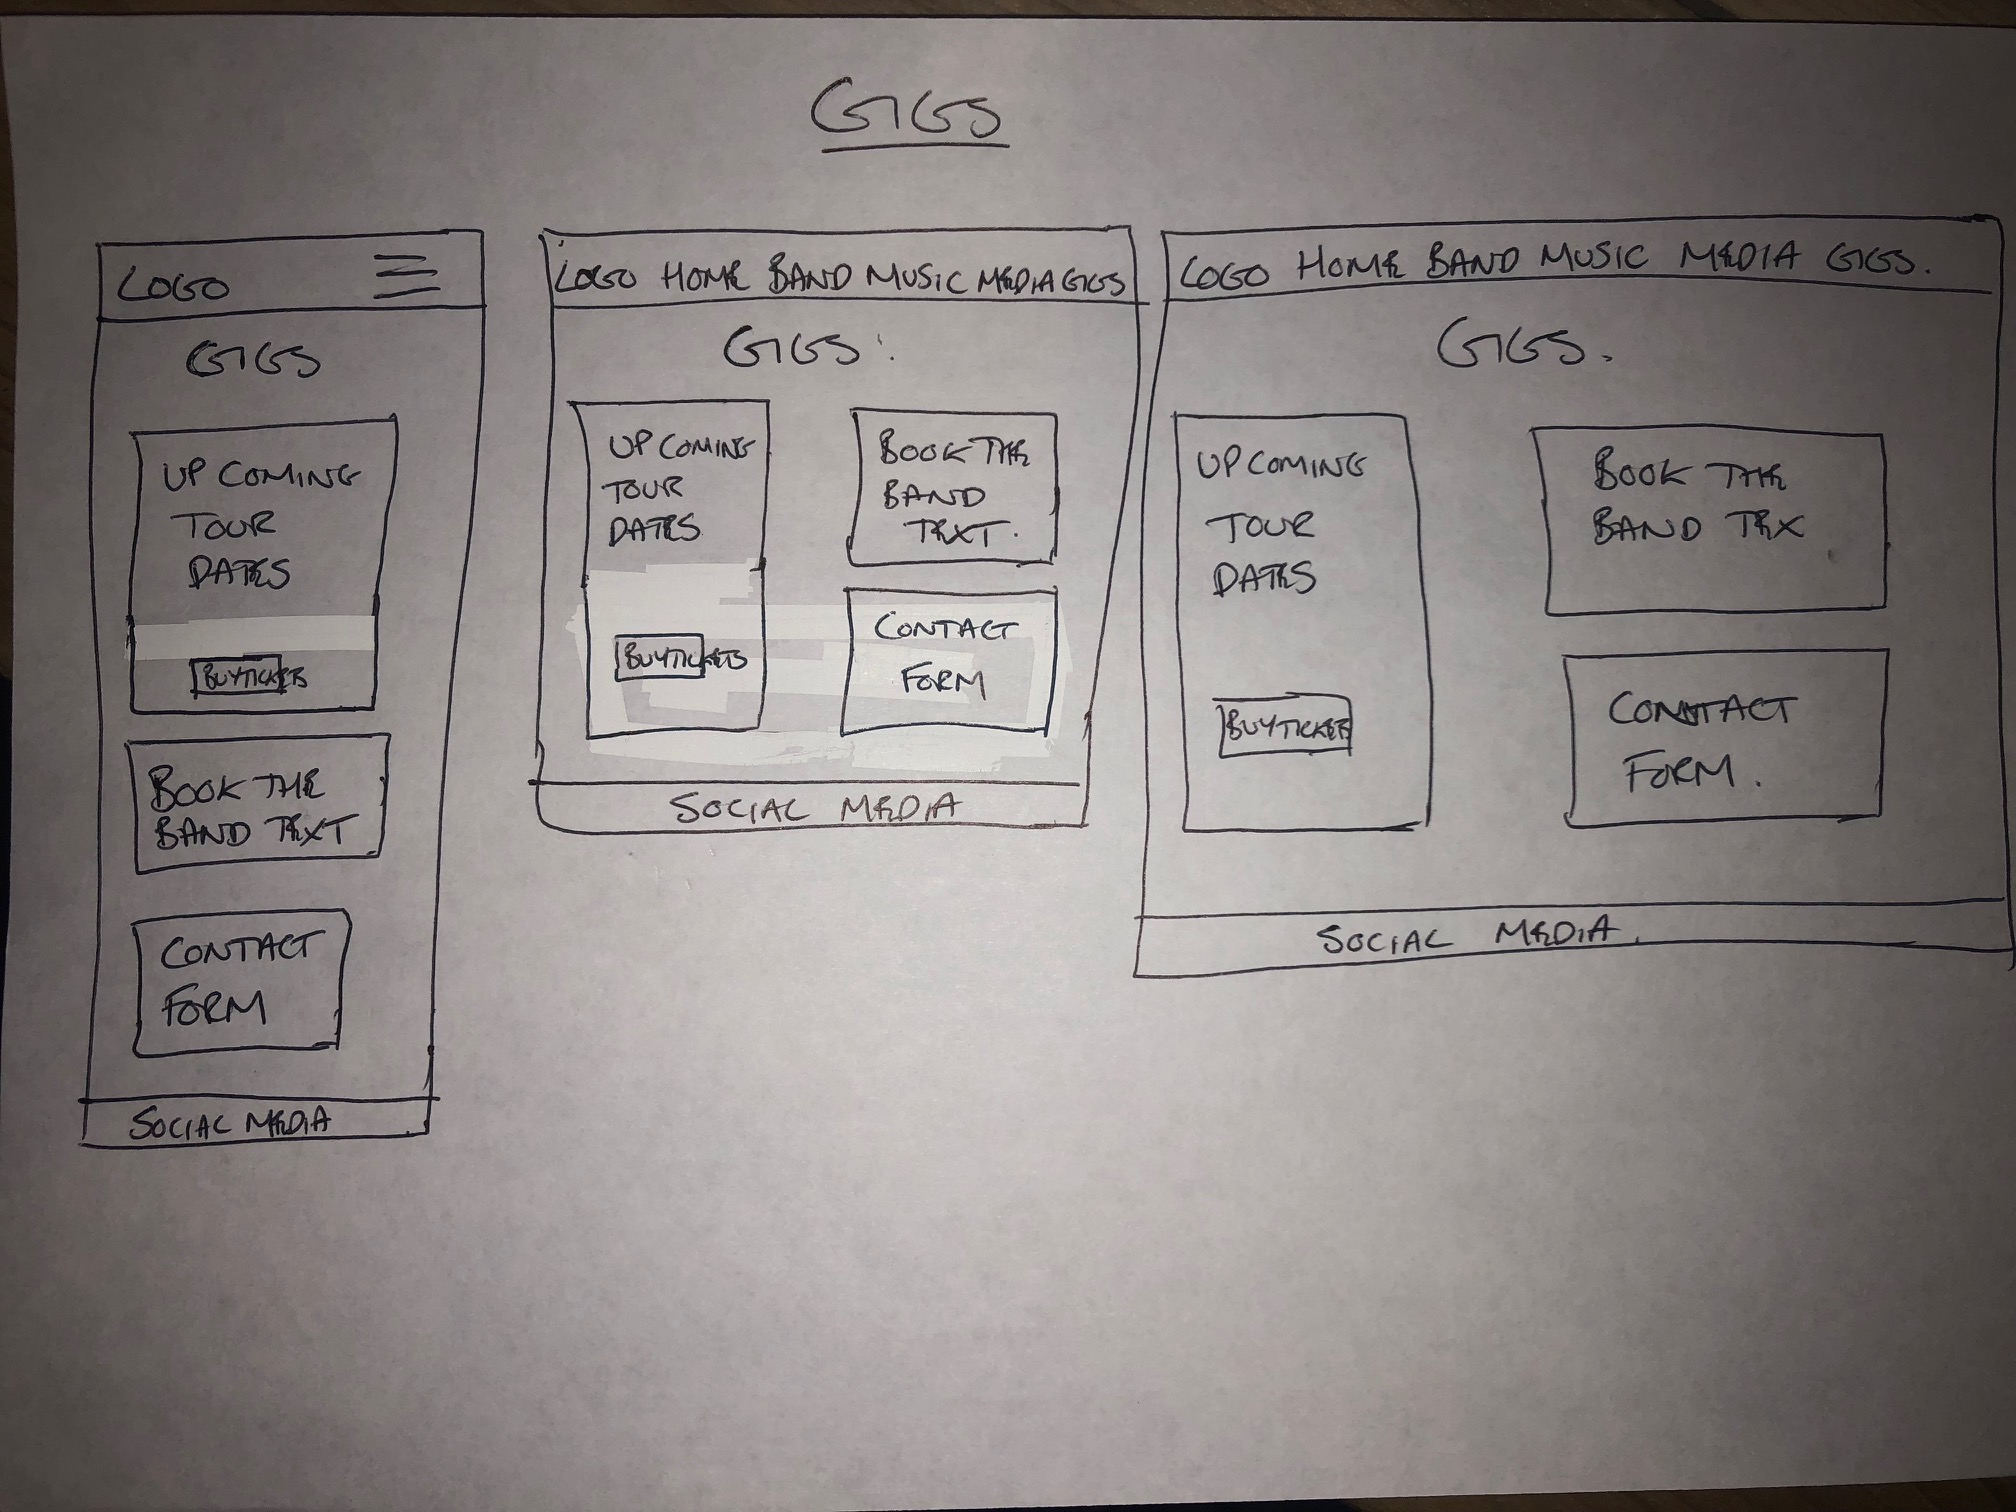 GIGS
LOGO
GIGS
UPCOMING
TOUR
DATES
BUY TICKETS
BOOK THE
BAND TEXT
CONTACT
FORM
SOCIAL MEDIA
LOGO HOME BAND MUSIC MEDIA GIGS
GIGS.
UPCOMING
TOUR
DATES
BUY TICKETS
BOOK THE
BAND
TEXT.
CONTACT
FORM
SOCIAL MEDIA
LOGO HOME BAND MUSIC MEDIA GIGS.
GIGS.
UPCOMING
TOUR
DATES
BUY TICKETS
BOOK THE
BAND TEX
CONTACT
FORM.
SOCIAL MEDIA.